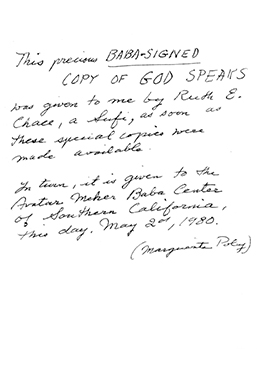 This precious BABA-SIGNED
COPY OF GOD SPEAKS
was given to me by Ruth E.
Chace, a Sufi, as soon as
these special copies were
made available.
In turn, it is given to the
Avatar Meher Baba Center
of Southern California,
this day. May 2nd, 1980.
(Marguerite Poley)